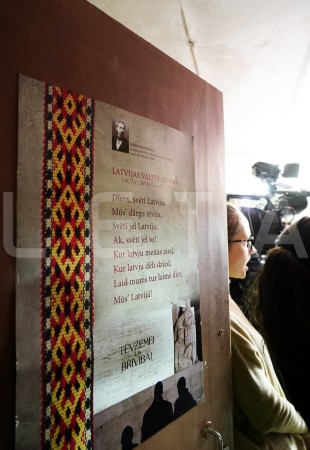 LATVIJAS VALSTS HIMNA
Dievs, svētī Latviju,
Mūs' dārgo tēviju,
Svētī jel Latviju,
Ak, svētī jel to!
Kur latvju meitas zied,
Kur latvju dēli dzied,
Laid mums tur laimē diet,
Mūs' Latvijā!
TĒVZEMEI
UN
BRĪVĪBAI
LETA